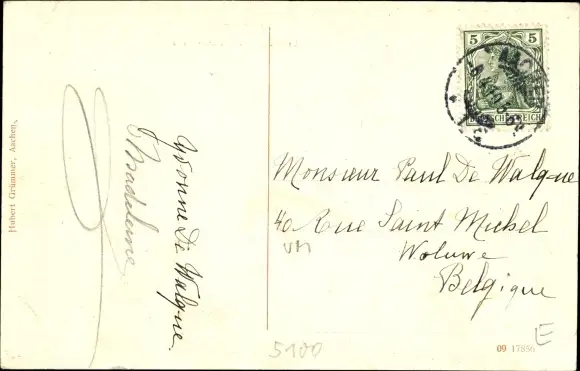 Hubert Grümmer, Aachen.
Yvonne De Walque.
Madeleine
5
5
AACHEN
DEUTSCHES REICH
Monsieur Paul De Walque
40 Rue Saint Michel
Woluwe
Belgique
VM
5100
09 17856
E